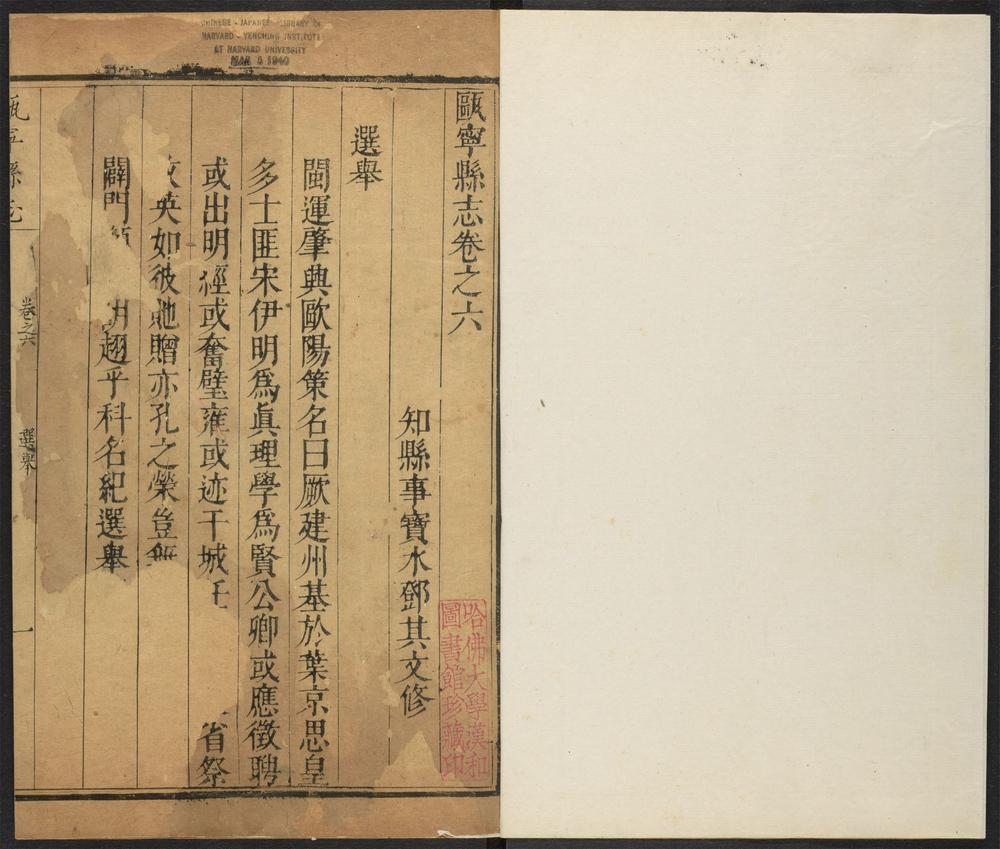 CHINESE - JAPANESE LIBRARY OF
HARVARD - YENCHING INSTITUTE
AT HARVARD UNIVERSITY
MAR 5 1940
甌寧縣志卷之六
知縣事寶水鄧其文修
選舉
閩運肇興歐陽策名曰厥建州基於葉京思皇
多士匪宋伊明爲眞理學爲賢公卿或應徵聘
或出明經或奮璧雍或迹干城 省祭
英如彼虵贈亦孔之榮豈無
闢門 趐乎科名紀選舉
哈佛大學漢和
圖書館珍藏印
甌寧縣志
卷之六
選舉
一